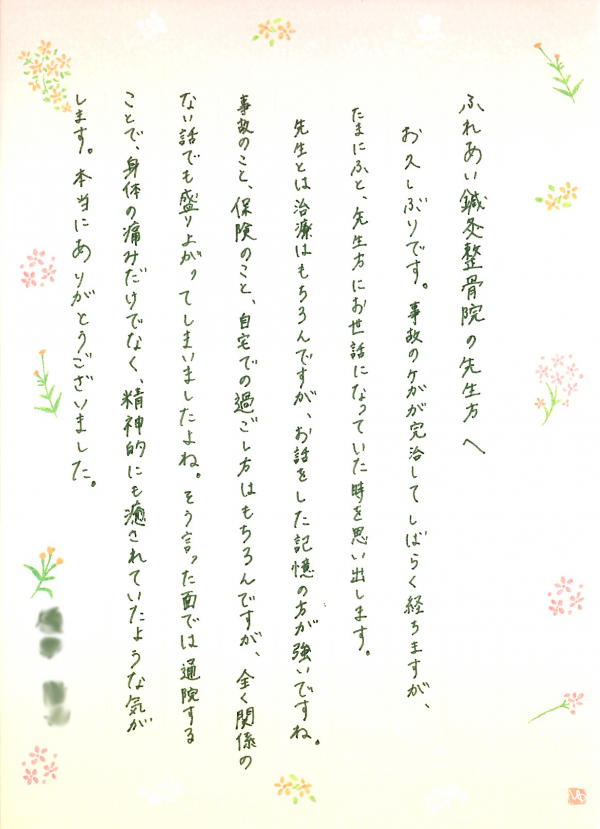 ふれあい鍼灸整骨院の先生方へ
お久しぶりです。事故のケガが完治してしばらく経ちますが、
たまにふと、先生方にお世話になっていた時を思い出します。
先生とは治療はもちろんですが、お話をした記憶の方が強いですね。
事故のこと、保険のこと、自宅での過ごし方はもちろんですが、全く関係の
ない話でも盛り上がってしまいましたよね。そう言った面では通院する
ことで、身体の痛みだけでなく、精神的にも癒されていたような気が
します。本当にありがとうございました。